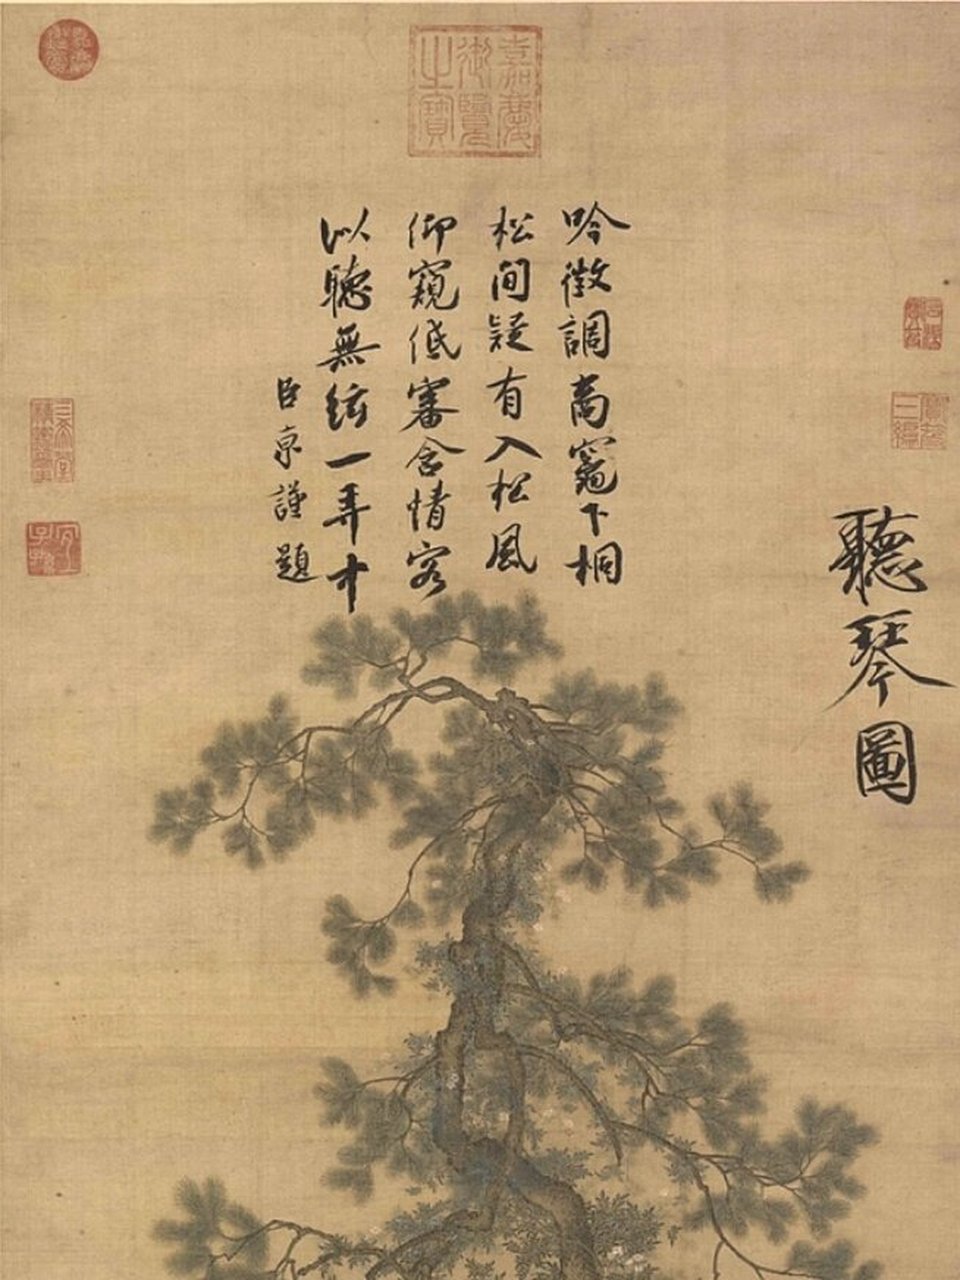 聽琴圖
吟徵調商竈下桐
松間疑有入松風
仰窺低審含情客
以聽無絃一弄中
臣京謹題
嘉慶
御覽
之寶